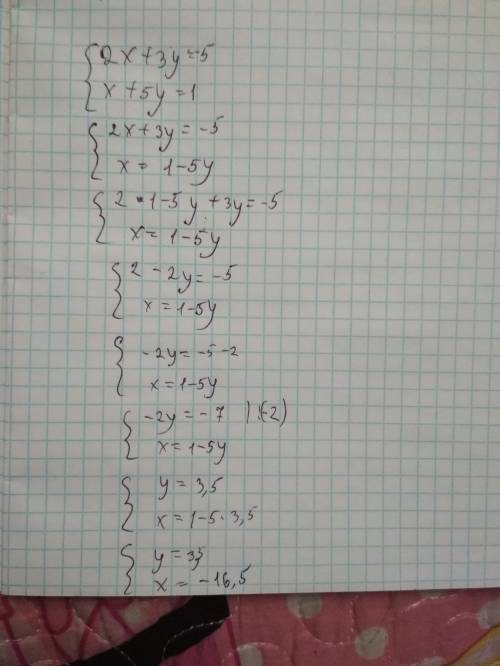 2x+3y=-5
x+5y=1
2x+3y=-5
x= 1-5y
2·1-5y+3y=-5
x= 1-5y
2-2y=-5
x=1-5y
-2y=-5-2
x=1-5y
-2y=-7 |:(-2)
x=1-5y
y=3,5
x=1-5·3,5
y=3,5
x=-16,5